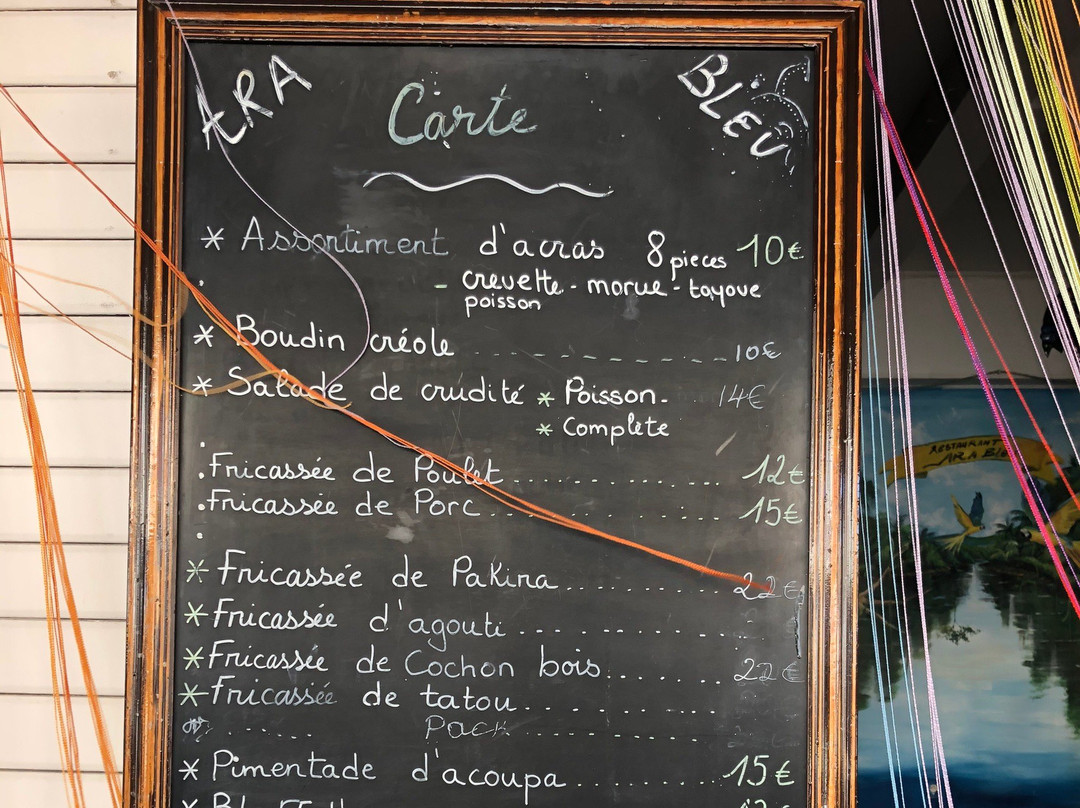 ARA BLEU
Carte
* Assortiment d'acras 8 pieces 10€
- crevette - morue - tayove
poisson
* Boudin créole ............ 10€
* Salade de crudité * Poisson. 14€
* Complète
. Fricassée de Poulet............... 12€
. Fricassée de Porc............ 15€
* Fricassée de Pakira.............. 22€
* Fricassée d'agouti..............
* Fricassée de Cochon bois.......... 22€
* Fricassée de tatou............
* Pimentade d'acoupa............ 15€
RESTAURANT
ARA BLEU